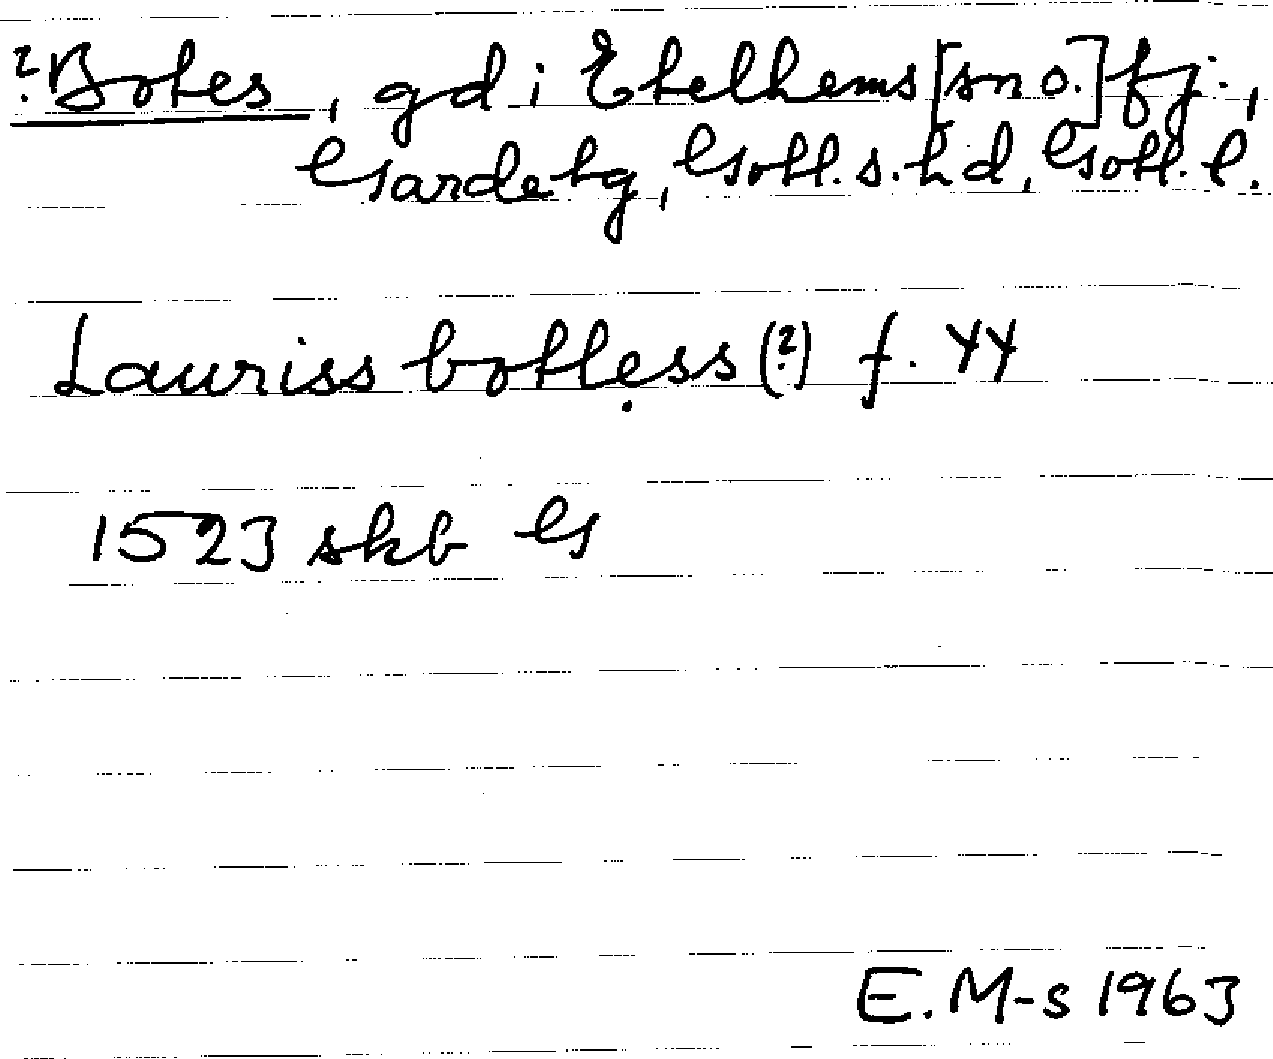 ?Botes, gd i Etelhems [sn o.] fj.,
Garde tg, Gotl. s. hd, Gotl. l.
Lauriss botless (?) f. 44
1523 skb G
E. M-s 1963